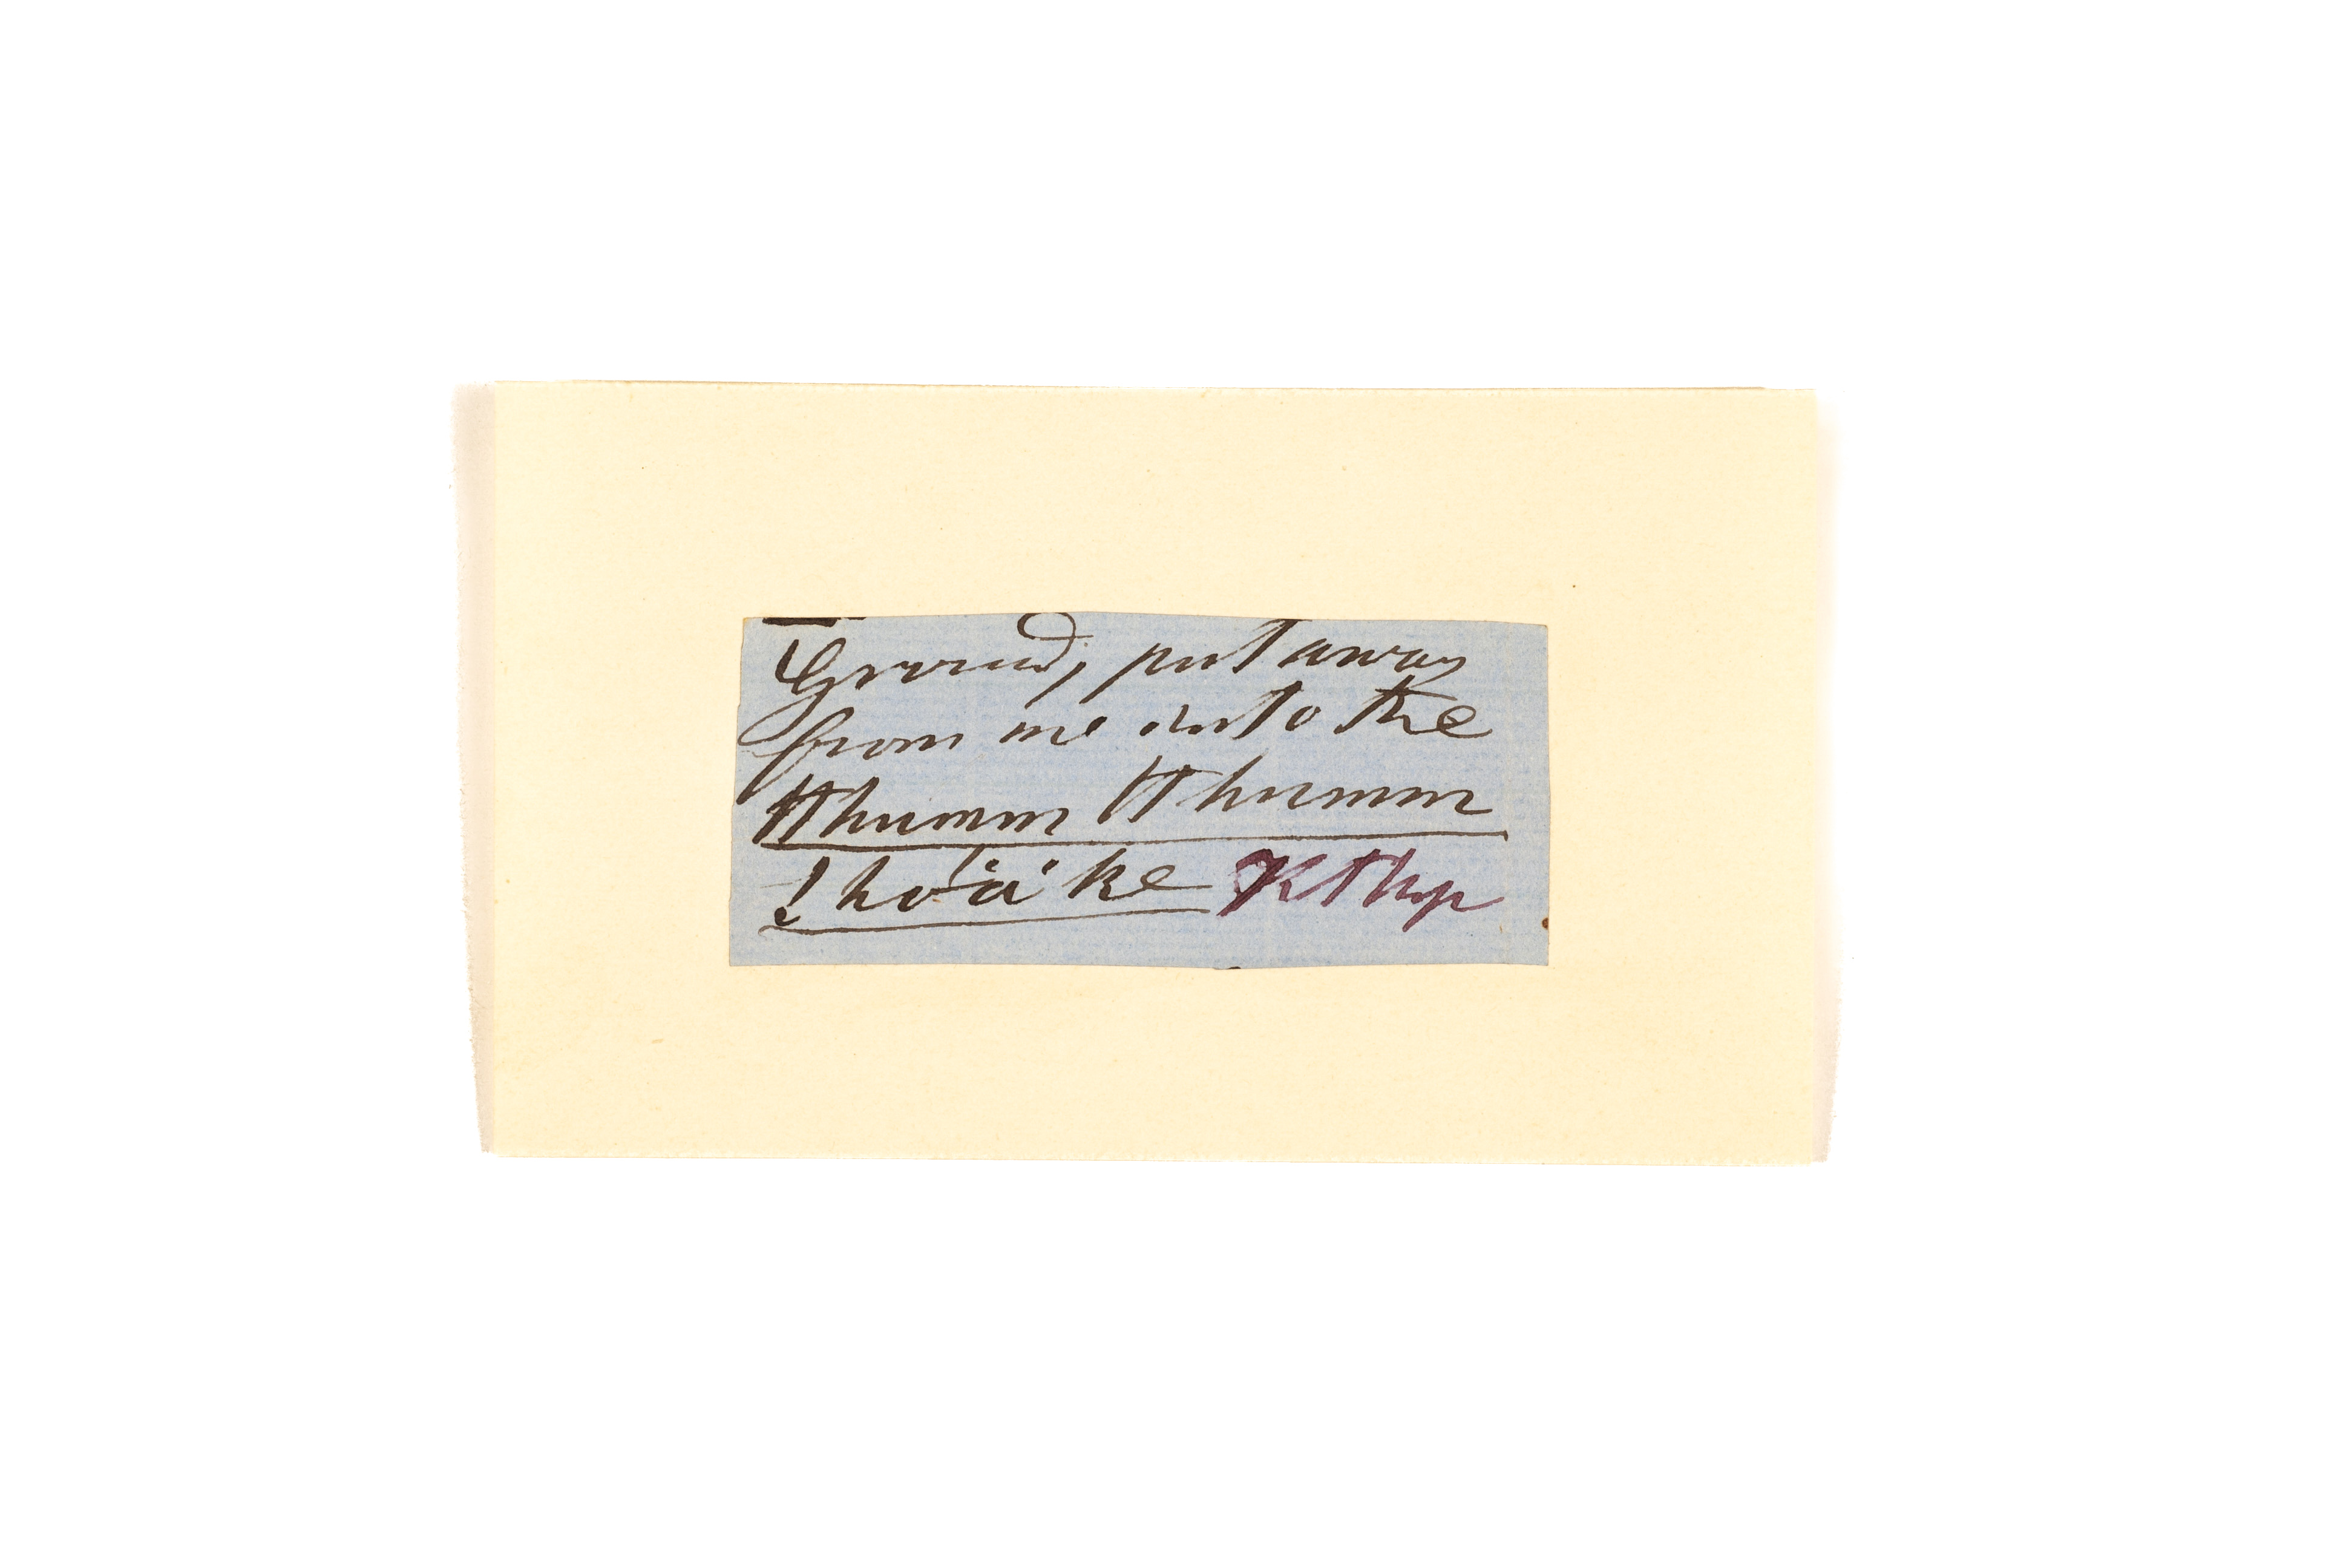 Ground, put away
from me into the
ǁhumm ǁhumm
ǃhṓä̀ ke K Thp